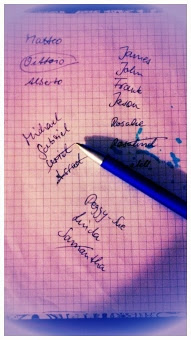 Matteo
Alberto
James
John
Frank
Jason
Rosalie
Rosalind
Michael
Gabriel
Peggy-Sue
Linda
Samantha